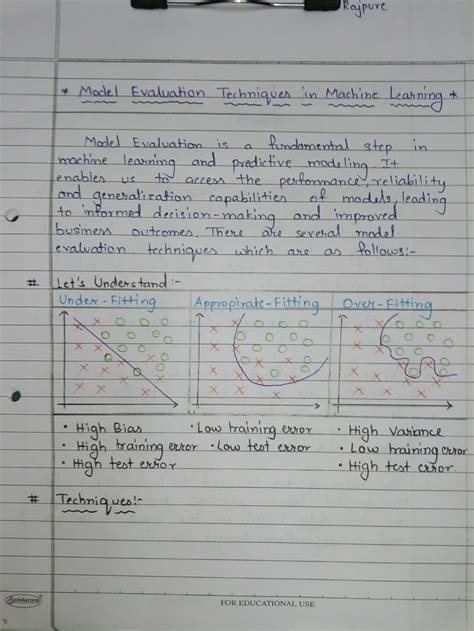 Rajpure
* Model Evaluation Techniques in Machine Learning *
Model Evaluation is a fundamental step in
machine learning and predictive modeling. It
enables us to access the performance, reliability
and generalization capabilities of models, leading
to informed decision-making and improved
business outcomes. There are several model
evaluation techniques which are as follows:-
# Let's Understand:-
Under-Fitting Appropirate-Fitting Over-Fitting
• High Bias • Low training error • High Variance
• High training error • Low test error • Low training error
• High test error • High test error
# Techniques:-
Sundaram
FOR EDUCATIONAL USE